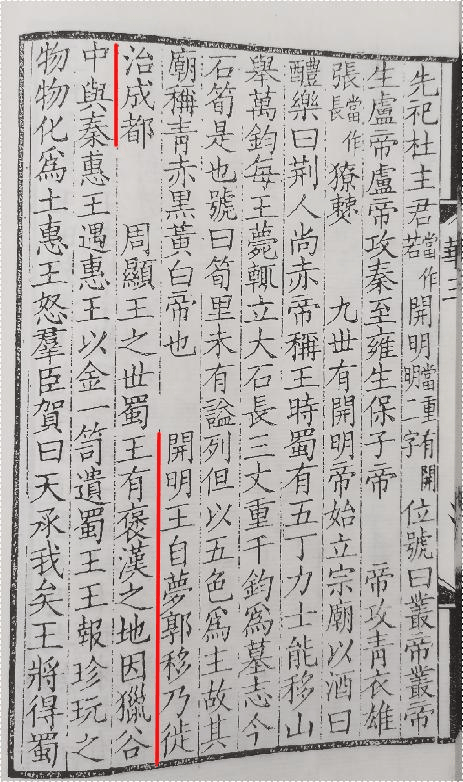 先祀杜主君當作若開明當重有開明二字位號曰叢帝叢帝
生盧帝盧帝攻秦至雍生保子帝　帝攻青衣雄
張當作長獠僰　九世有開明帝始立宗廟以酒曰
醴樂曰荆人尚赤帝稱王時蜀有五丁力士能移山
舉萬鈞每王薨輒立大石長三丈重千鈞爲墓志今
石筍是也號曰筍里未有謚列但以五色爲主故其
廟稱青赤黑黃白帝也　開明王自夢郭移乃徙
治成都　周顯王之世蜀王有褒漢之地因獵谷
中與秦惠王遇惠王以金一笥遺蜀王王報珍玩之
物物化爲土惠王怒羣臣賀曰天承我矣王將得蜀